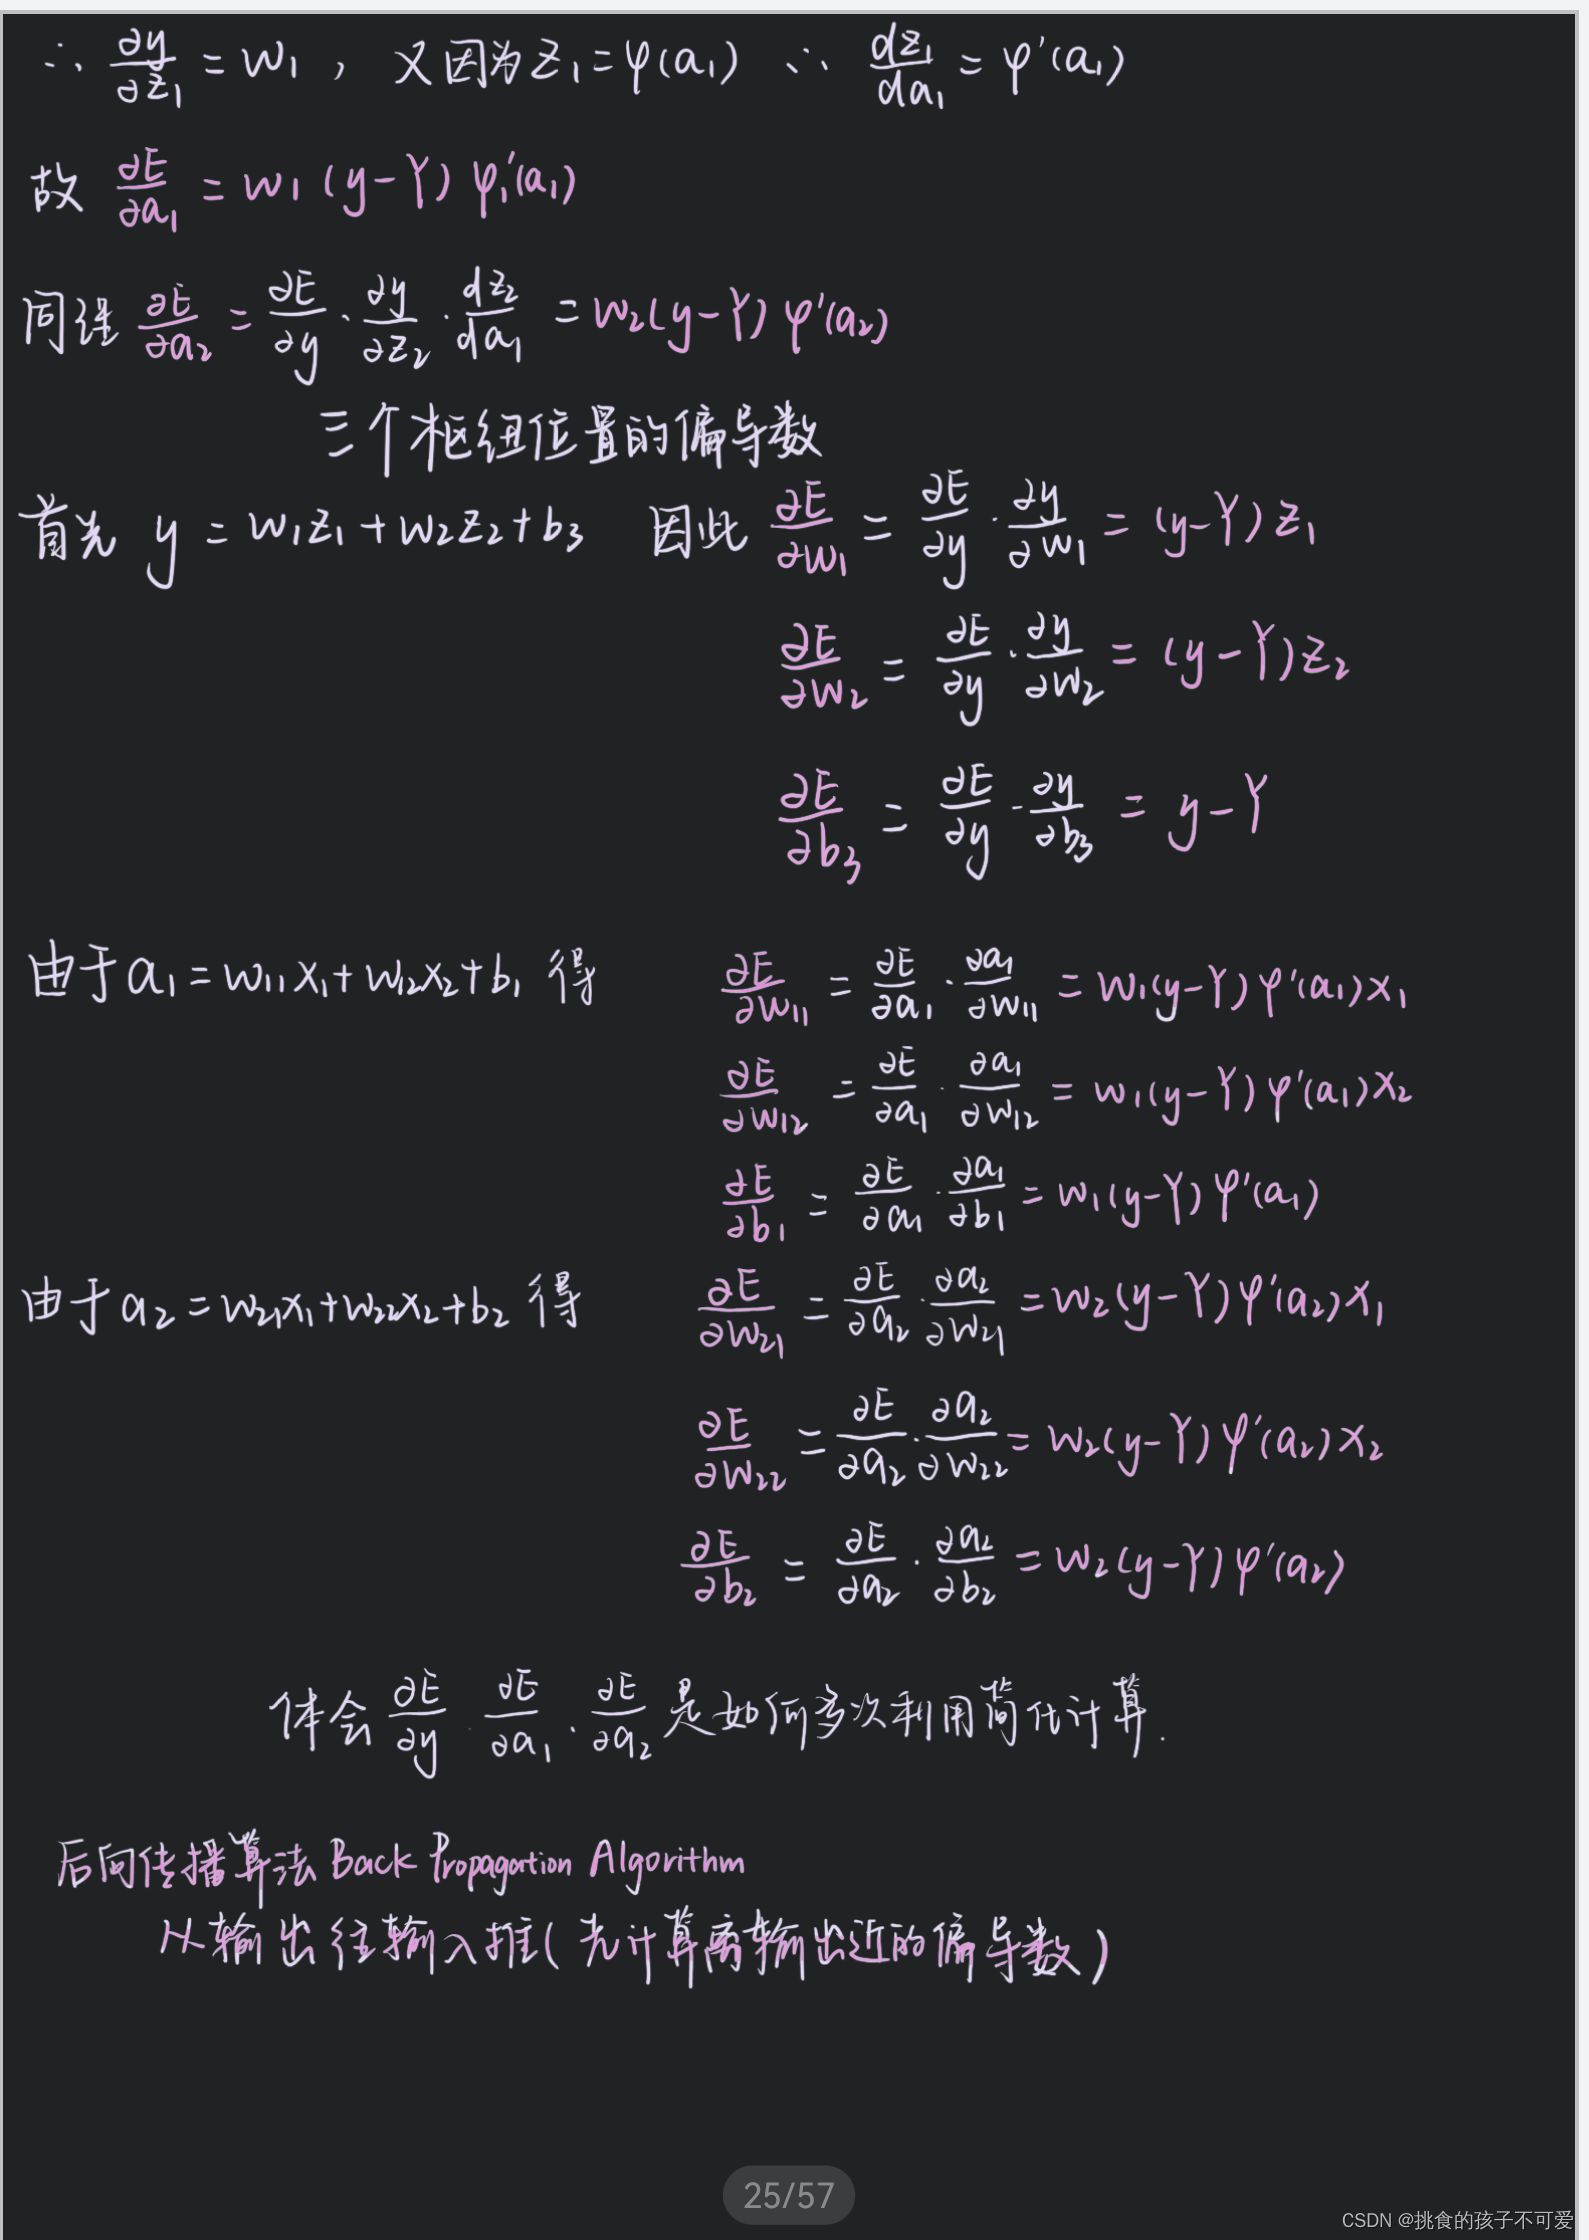 ∴ ∂y/∂z₁ = w₁ , 又因为 z₁=φ(a₁) ∴ dz₁/da₁ = φ'(a₁)
故 ∂E/∂a₁ = w₁(y-Y)φ₁'(a₁)
同理 ∂E/∂a₂ = ∂E/∂y · ∂y/∂z₂ · dz₂/da₁ = w₂(y-Y)φ'(a₂)
三个枢纽位置的偏导数
首先 y = w₁z₁+w₂z₂+b₃ 因此 ∂E/∂w₁ = ∂E/∂y · ∂y/∂w₁ = (y-Y)z₁
∂E/∂w₂ = ∂E/∂y · ∂y/∂w₂ = (y-Y)z₂
∂E/∂b₃ = ∂E/∂y · ∂y/∂b₃ = y-Y
由于 a₁=w₁₁x₁+w₁₂x₂+b₁ 得 ∂E/∂w₁₁ = ∂E/∂a₁ · ∂a₁/∂w₁₁ = w₁(y-Y)φ'(a₁)x₁
∂E/∂w₁₂ = ∂E/∂a₁ · ∂a₁/∂w₁₂ = w₁(y-Y)φ'(a₁)x₂
∂E/∂b₁ = ∂E/∂a₁ · ∂a₁/∂b₁ = w₁(y-Y)φ'(a₁)
由于 a₂=w₂₁x₁+w₂₂x₂+b₂ 得 ∂E/∂w₂₁ = ∂E/∂a₂ · ∂a₂/∂w₂₁ = w₂(y-Y)φ'(a₂)x₁
∂E/∂w₂₂ = ∂E/∂a₂ · ∂a₂/∂w₂₂ = w₂(y-Y)φ'(a₂)x₂
∂E/∂b₂ = ∂E/∂a₂ · ∂a₂/∂b₂ = w₂(y-Y)φ'(a₂)
体会 ∂E/∂y · ∂E/∂a₁ · ∂E/∂a₂ 是如何多次利用简化计算.
后向传播算法 Back Propagation Algorithm
从输出往输入推(先计算离输出近的偏导数)
25/57
CSDN @挑食的孩子不可爱